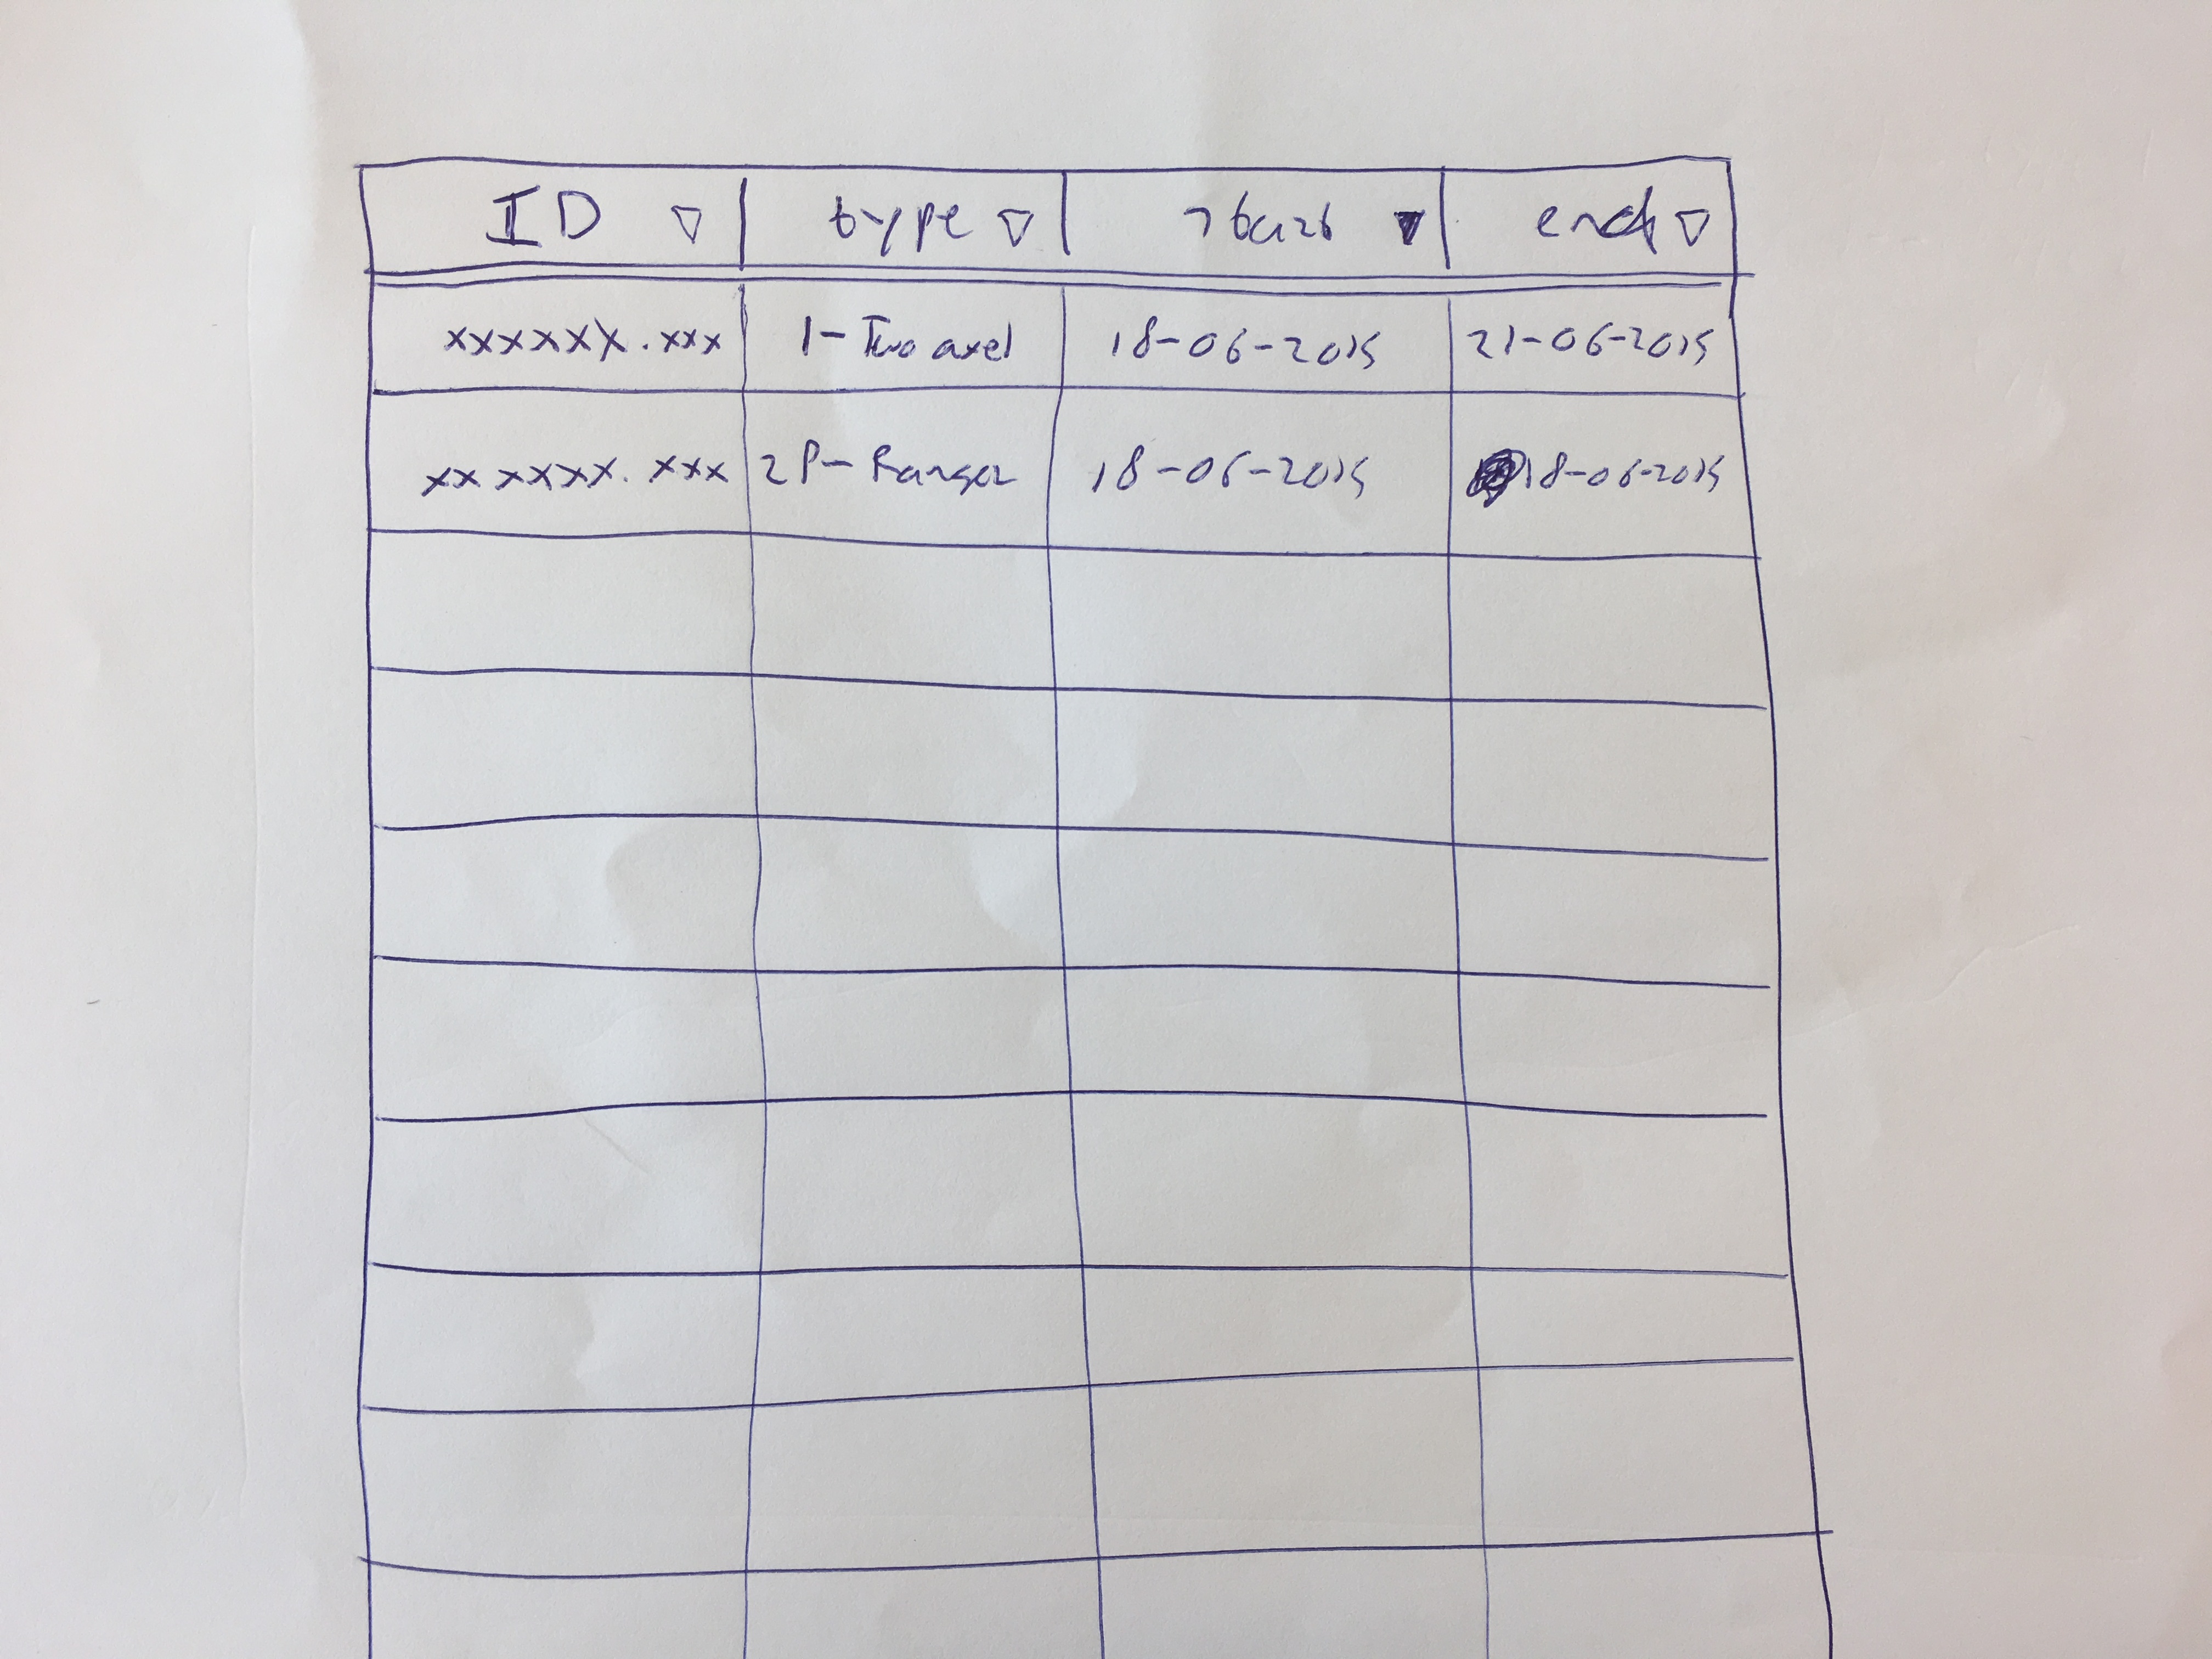 ID ▽ type ▽ start ▼ end ▽
xxxxxx.xxx 1-Two axel 18-06-2015 21-06-2015
xxxxxx.xxx 2P-Ranger 18-06-2015 18-06-2015